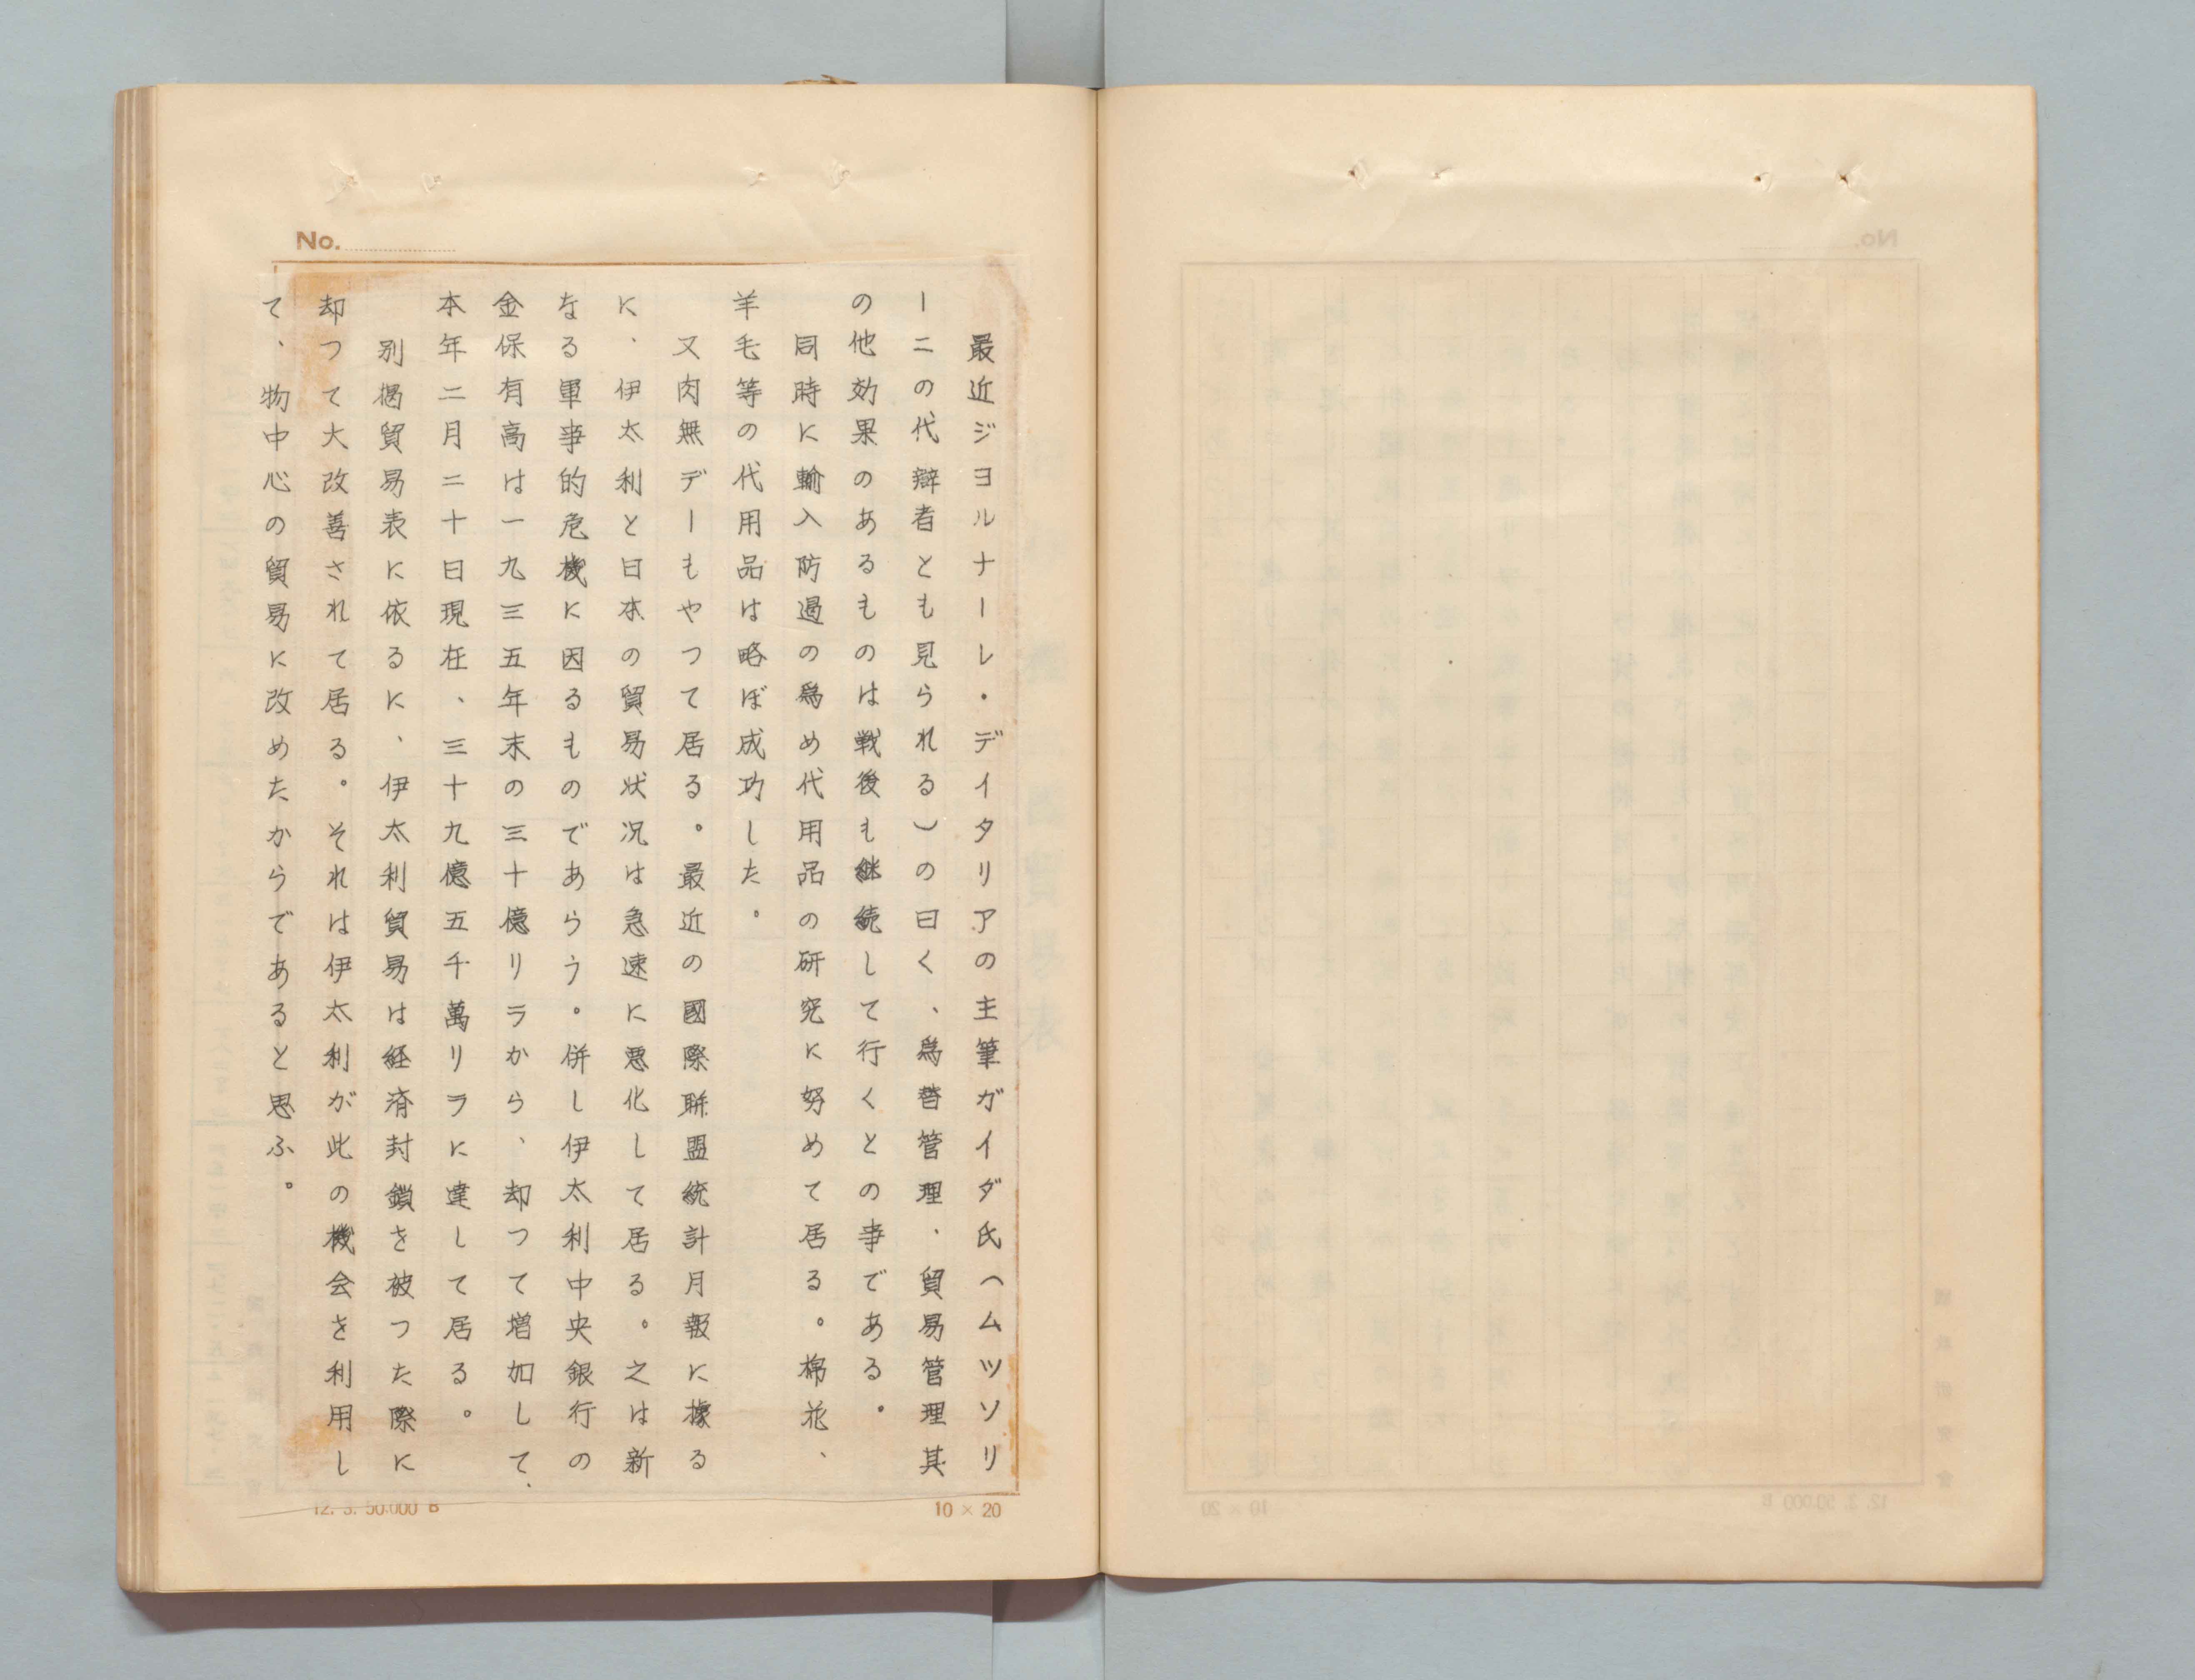 No.
最近ジヨルナーレ・デイタリアの主筆ガイダ氏(ムツソリ
ーニの代辯者とも見られる)の曰く、爲替管理、貿易管理其
の他効果のあるものは戦後も継続して行くとの事である。
同時に輸入防遏の爲め代用品の研究に努めて居る。棉花、
羊毛等の代用品は略ぼ成功した。
又肉無デーもやつて居る。最近の國際聯盟統計月報に據る
に、伊太利と日本の貿易状況は急速に悪化して居る。之は新
なる軍事的危機に因るものであらう。併し伊太利中央銀行の
金保有高は一九三五年末の三十億リラから、却つて増加して、
本年二月二十日現在、三十九億五千萬リラに達して居る。
別掲貿易表に依るに、伊太利貿易は経済封鎖を被つた際に
却つて大改善されて居る。それは伊太利が此の機会を利用し
て、物中心の貿易に改めたからであると思ふ。
12. 3. 50.000 B
10 × 20